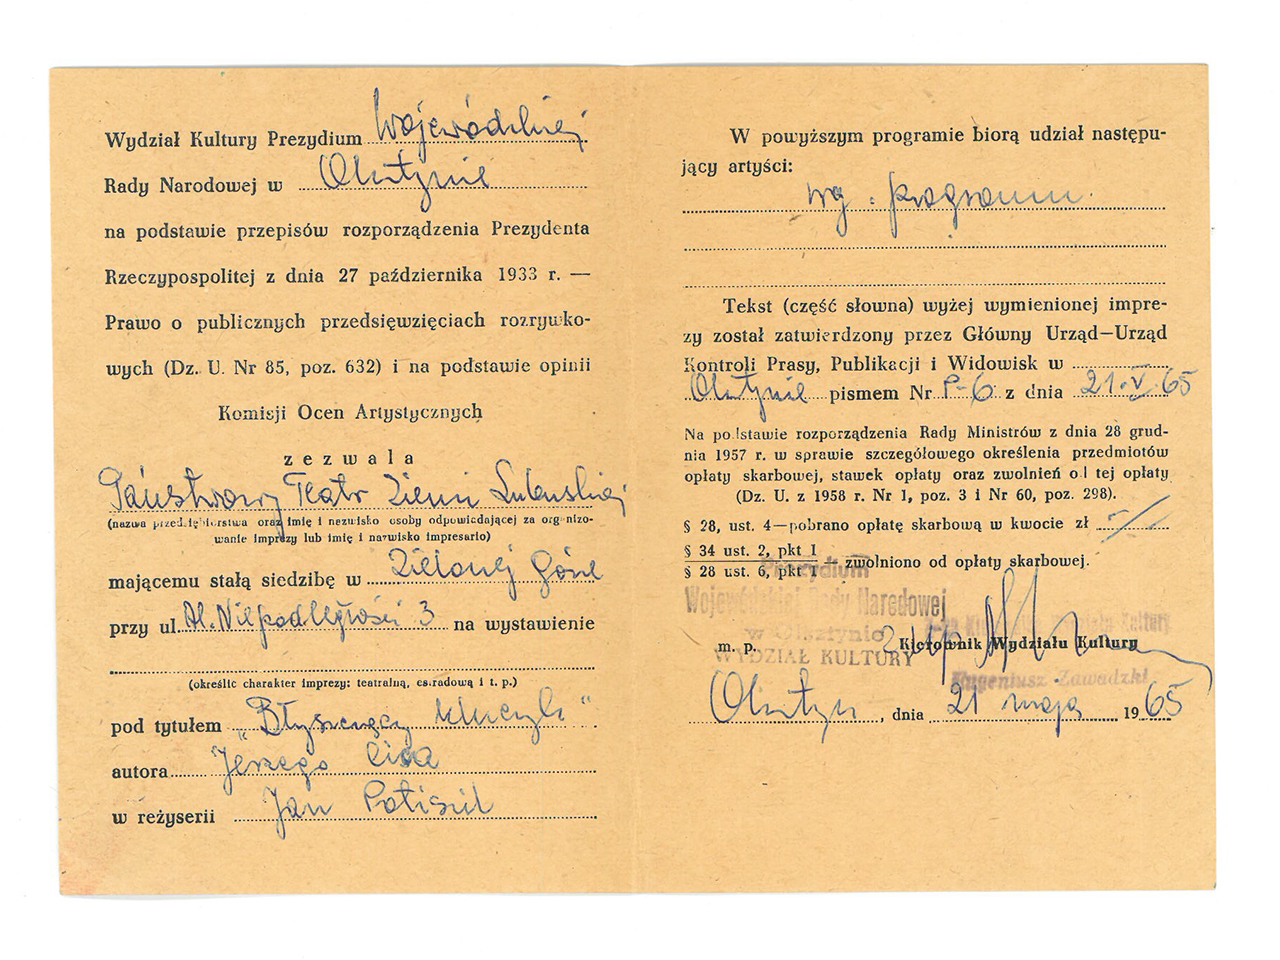 Wydział Kultury Prezydium Wojewódzkiej
Rady Narodowej w Olsztynie
na podstawie przepisów rozporządzenia Prezydenta
Rzeczypospolitej z dnia 27 października 1933 r. —
Prawo o publicznych przedsięwzięciach rozrywko-
wych (Dz. U. Nr 85, poz. 632) i na podstawie opinii
Komisji Ocen Artystycznych
zezwala
Państwowy Teatr Ziemi Lubuskiej
(nazwa przedsiębiorstwa oraz imię i nazwisko osoby odpowiadającej za organizo-
wanie imprezy lub imię i nazwisko impresario)
mającemu stałą siedzibę w Zielonej Górze
przy ul. Al. Niepodległości 3 na wystawienie
(określić charakter imprezy: teatralną, estradową i t. p.)
pod tytułem „Błyszczący kluczyk"
autora Jerzego
w reżyserii Jan
W powyższym programie biorą udział następu-
jący artyści:
wg. programu
Tekst (część słowna) wyżej wymienionej impre-
zy został zatwierdzony przez Główny Urząd—Urząd
Kontroli Prasy, Publikacji i Widowisk w
Olsztynie pismem Nr P-6 z dnia 21.V.65
Na podstawie rozporządzenia Rady Ministrów z dnia 28 grud-
nia 1957 r. w sprawie szczegółowego określenia przedmiotów
opłaty skarbowej, stawek opłaty oraz zwolnień od tej opłaty
(Dz. U. z 1958 r. Nr 1, poz. 3 i Nr 60, poz. 298).
§ 28, ust. 4—pobrano opłatę skarbową w kwocie zł
§ 34 ust. 2, pkt 1
§ 28 ust. 6, pkt 1 — zwolniono od opłaty skarbowej.
Prezydium
Wojewódzkiej Rady Narodowej
w Olsztynie
WYDZIAŁ KULTURY
m. p. Kierownik Wydziału Kultury
Eugeniusz Zawadzki
Olsztyn, dnia 21 maja 1965